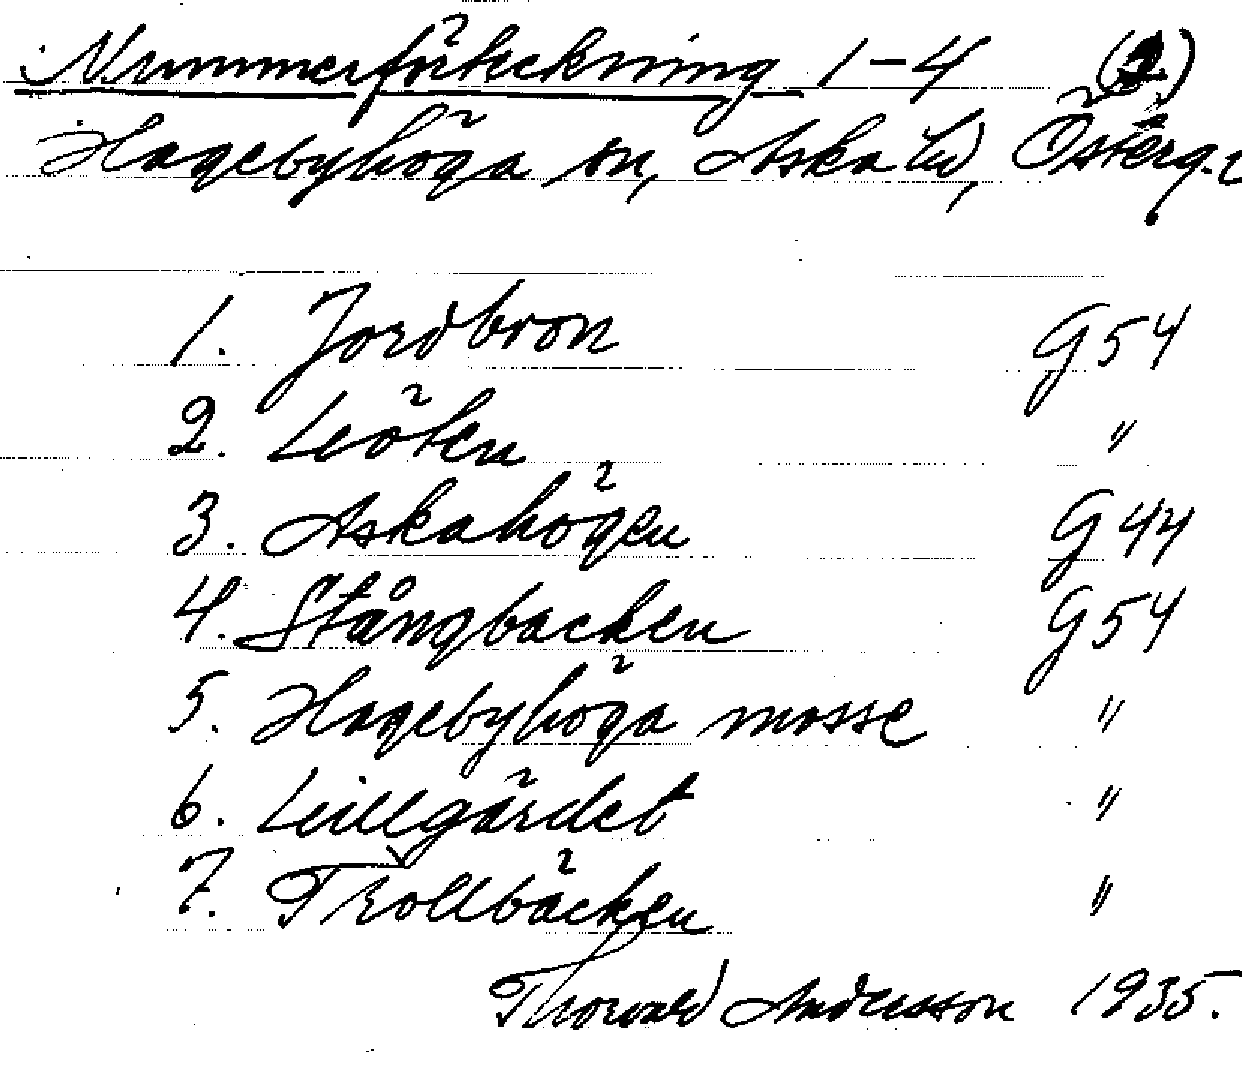 Nummerförteckning 1-4
Hagebyhöga sn, Aska hd, Österg.
1. Jordbron G54
2. Leöten "
3. Askahögen G44
4. Stångbacken G54
5. Hagebyhöga mosse "
6. Lillgärdet "
7. Trollbäcken "
Thorvald Andersson 1935.